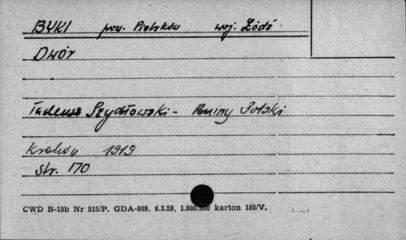 BYKI pow. Piotrków woj. Łódź
Dwór
Tadeusz Szydłowski - Ruiny Polski
Kraków 1919
Str. 170
CWD B-15b Nr 515/P. GDA-809. 6.3.59. 1.000.000 karton 180/V.